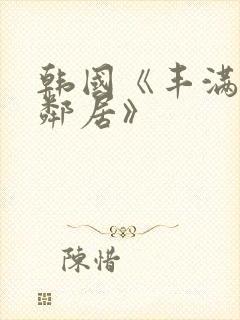 韩国《丰满
邻居》
陳惜